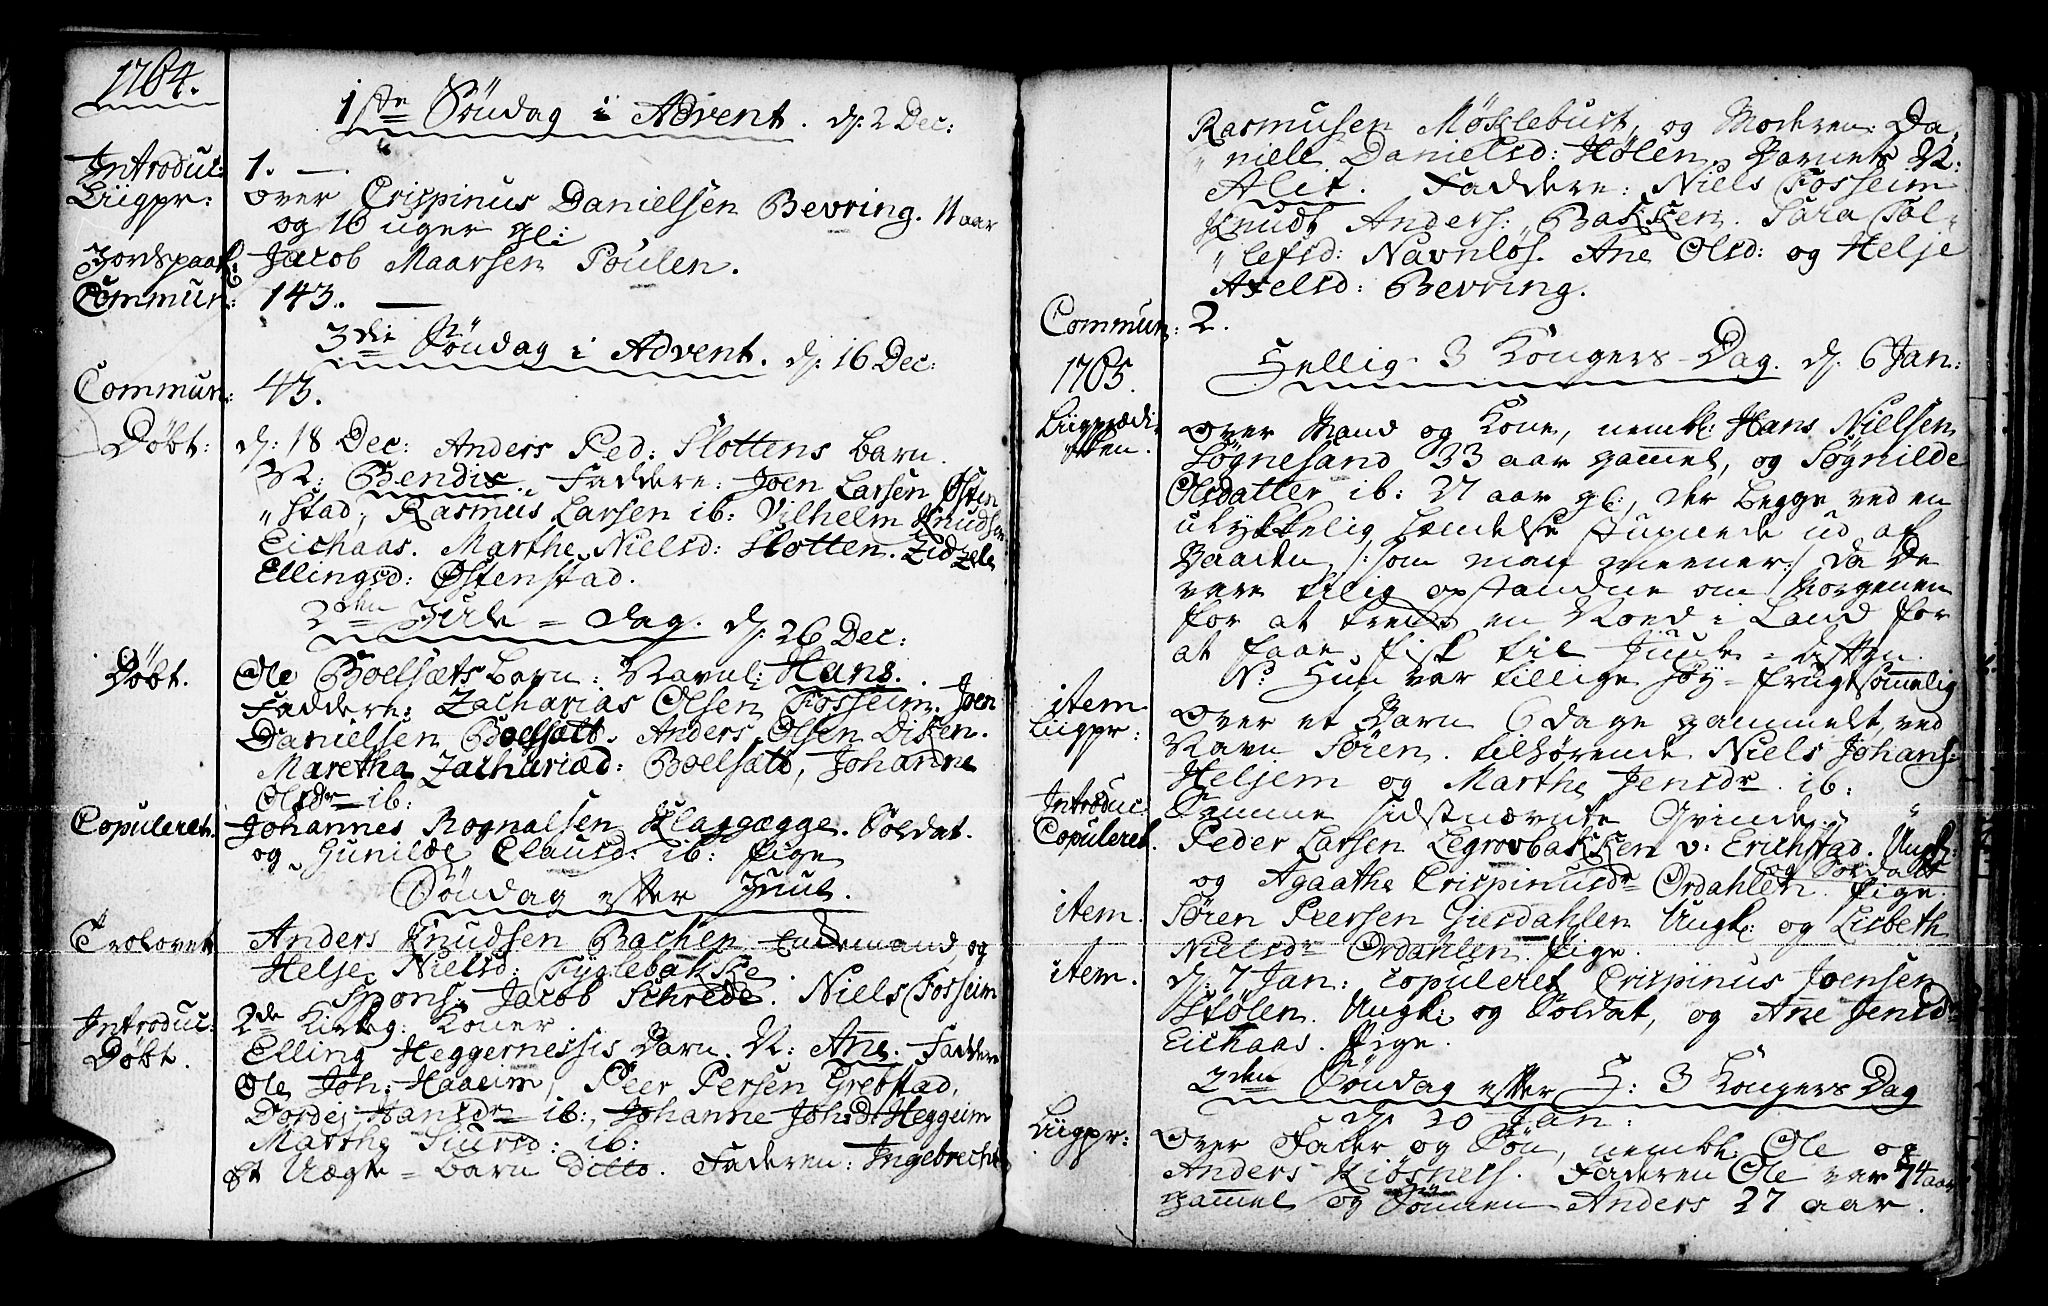 1764.
1ste Söndag i Advent. d: 2 Dec:
Introduc: 1. —
Liigpr: over Crispinus Danielsen Bevring. 11 aar
og 16 uger gl:
Jordspaak: Jacob Maarsen Poulen.
Commun: 143. —
3die Söndag i Advent. d: 16 Dec:
Commun: 43.
Döbt: d: 18 Dec: Anders Ped: Slottens barn
N: Bendix. Faddere: Joen Larsen Østen
"stad, Rasmus Larsen ib: Vilhelm Knudsen
Eichaas. Marthe Nielsd: Slotten. Zidzele
Ellingsd: Østenstad.
2den Jule = dag. d: 26 Dec:
Döbt. Ole Boelsæts barn: Navnl: Hans.
Faddere: Zacharias Olsen Fosseim. Joen
Danielsen Boelsætt. Anders Olsen Disen.
Maretha Zachariæd: Boelsætt, Johanne
Olsdr ib:
Copuleret. Johannes Rognalsen Klaggægge. Soldat.
og Gunilde Clausd: ib: Pige
Söndag efter Juul.
Trolovet Anders Knudsen Bachen Enckemand, og
Helje Nielsd: Fyglebakke
Spons: Jacob Schrede. Niels Fosseim
Introduc: 2de Kirkeg: Koner.
Döbt. Elling Heggernessis Barn. N: Ane. Faddere
Ole Joh: Haaeim, Peer Persen Grebstad,
Dorde Hansdr ib:, Johanne Johsd: Heggeim
Marthe Siursd: ib:
Et Uægte = barn Ditto. Faderen: Ingebrecht
Rasmusen Möklebust, og Moderen: Da,
" niele Danielsd: Hølen. Barnets N:
Alit. Faddere: Niels Fosseim
Knudt Anders: Bakken. Sara Tol,
" lefsd: Navnlös. Ane Olsd: og Helje
Axelsd: Bevring.
Commun: 2.
1765. Hellig 3 Kongers Dag. d: 6 Jan:
Liigprædi- over Mand og Kone, nembl: Hans Nielsen
ken. Søgnesand 33 aar gammel, og Søgnilde
Olsdatter ib: 27 aar gl:, der begge ved en
ulykkelig hændelse stupede ud af
Baaden /: som man meener :/ da de
vare tilig opstandne om Morgenen
for at troe en Noed i Land for
at faae fisk til Juule = aften.
N: Hun var tillige høy = frugtsommelig
item Over et Barn 6 dage gammelt, ved
Liigpr: Navn Søren. tilhørende Niels Johans:
Heljem og Marthe Jensdr ib:
Introduc: Samme sidstnævnte Qvinde.
Copuleret. Peder Larsen Legrovbakken v: Erichstad. Ungk:
og Soldat
og Agaathe Crispinusdr Ørdahlen. Pige.
item. Søren Peersen Giesdahlen Ungk: og Lisbeth
Nielsdr Ørdahlen. Pige.
item. d: 7 Jan: Copuleret Crispinus Joensen
Stølen. Ungk: og Soldat, og Ane Jensd:
Eichaas. Pige.
2den Söndag efter H: 3 Kongers Dag
d: 20 Jan:
Liigpr: Over Fader og Sön, nembl: Ole og
Anders Kiösnes. Faderen Ole var 74 aar
gammel og Sönnen Anders 27 aar.